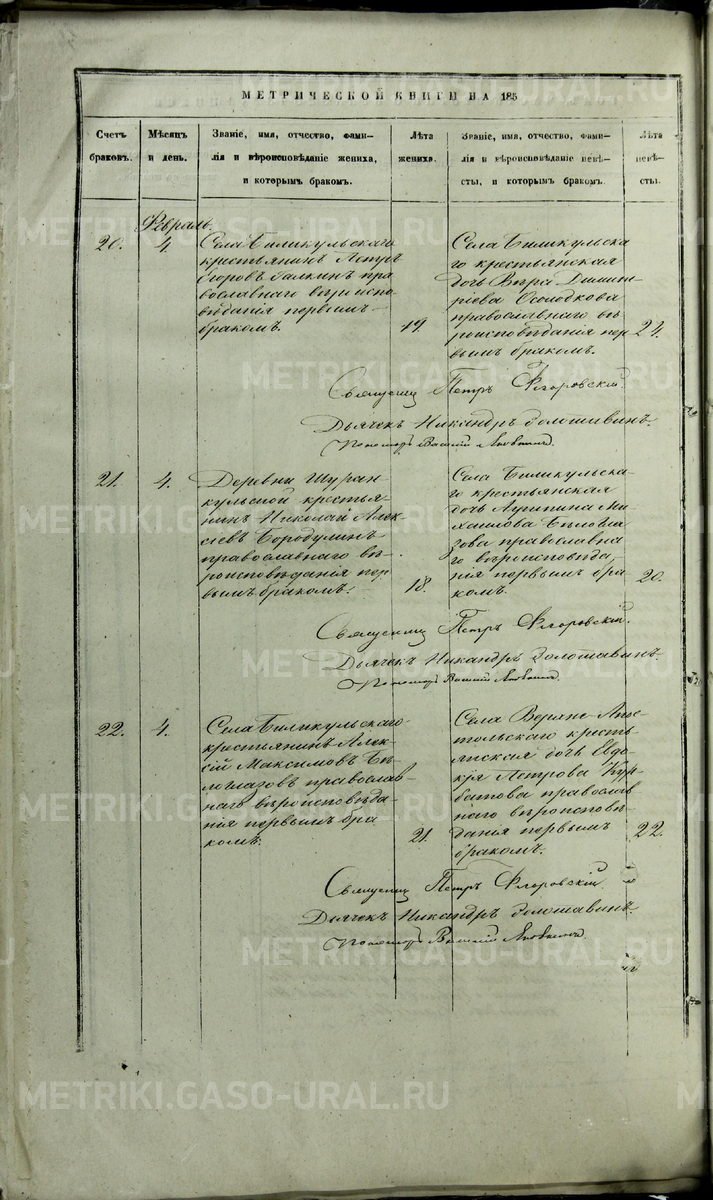 МЕТРИЧЕСКОЙ КНИГИ НА 185
Счетъ
браковъ.
Мѣсяцъ
и день.
Званіе, имя, отчество, фами-
лія и вѣроисповѣданіе жениха,
и которымъ бракомъ.
Лѣта
жениха.
Званіе, имя, отчество, фами-
лія и вѣроисповѣданіе невѣ-
сты, и которымъ бракомъ.
Лѣта
невѣ-
сты.
Февраль.
20.
4.
Села Биликульскаго
крестьянинъ Петръ
Егоровъ Галкинъ пра
вославнаго вѣроиспо-
вѣданія первымъ
бракомъ.
19.
Села Биликульска
го крестьянская
доч Вѣра Димит-
ріова Солодкова
православнаго вѣ
роисповѣданія пер
вымъ бракомъ.
21.
Священникъ Петръ Флоровскій.
Дьячекъ Никандръ Золотавинъ.
Пономарь Василій
21.
4.
Деревни Шуран
кульской крестья
нинъ Николай Алек-
сѣевъ Бородулинъ
православнаго вѣ-
роисповѣданія пер
вымъ бракомъ.
18.
Села Биликульска-
го крестьянская
доч Агрипина Ми-
хаилова Бѣлогла
зова православна
го вѣроисповѣда,
нія первымъ бра
комъ.
20.
Священникъ Петръ Флоровскій.
Дьячекъ Никандръ Золотавинъ.
Пономарь Василій
22.
4.
Села Биликульскаго
крестьянинъ Алек-
сій Максимовъ Бѣ
логлазовъ православ
наго вѣроисповѣда-
нія первымъ бра
комъ.
21.
Села Верхне-
крестья
янская доч Евдо-
кія Петрова Кур
батова православ
наго вѣроисповѣ-
данія первымъ
бракомъ.
22.
Священникъ Петръ Флоровскій.
Дьячекъ Никандръ Золотавинъ.
Пономарь Василій
METRIKI.GASO-URAL.RU